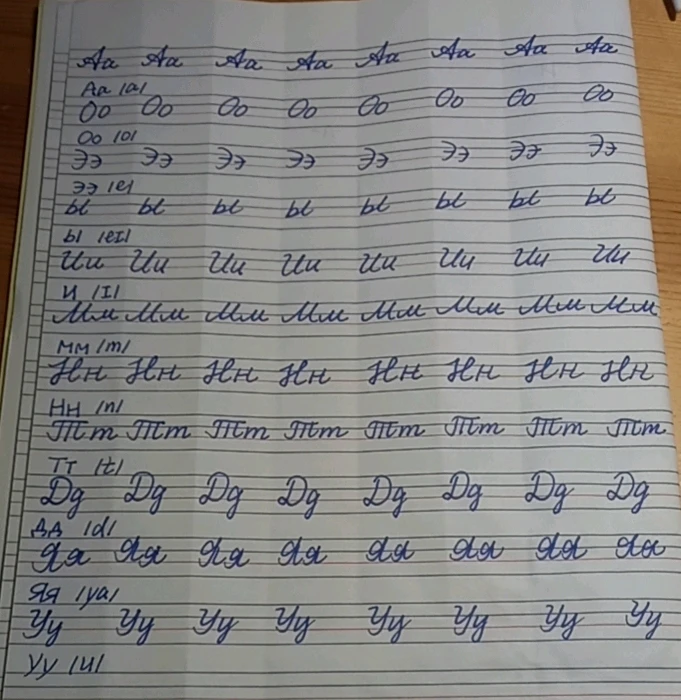 Аа Аа Аа Аа Аа Аа Аа Аа
Аа /a/
Оо Оо Оо Оо Оо Оо Оо Оо
Оо /o/
Ээ Ээ Ээ Ээ Ээ Ээ Ээ Ээ
Ээ /e/
ы ы ы ы ы ы ы ы
ы /eI/
Ии Ии Ии Ии Ии Ии Ии Ии
И /I/
Мм Мм Мм Мм Мм Мм Мм Мм
Мм /m/
Нн Нн Нн Нн Нн Нн Нн Нн
Нн /n/
Тт Тт Тт Тт Тт Тт Тт Тт
Тт /t/
Дд Дд Дд Дд Дд Дд Дд Дд
Дд /d/
Яя Яя Яя Яя Яя Яя Яя Яя
Яя /ya/
Уу Уу Уу Уу Уу Уу Уу Уу
Уу /u/